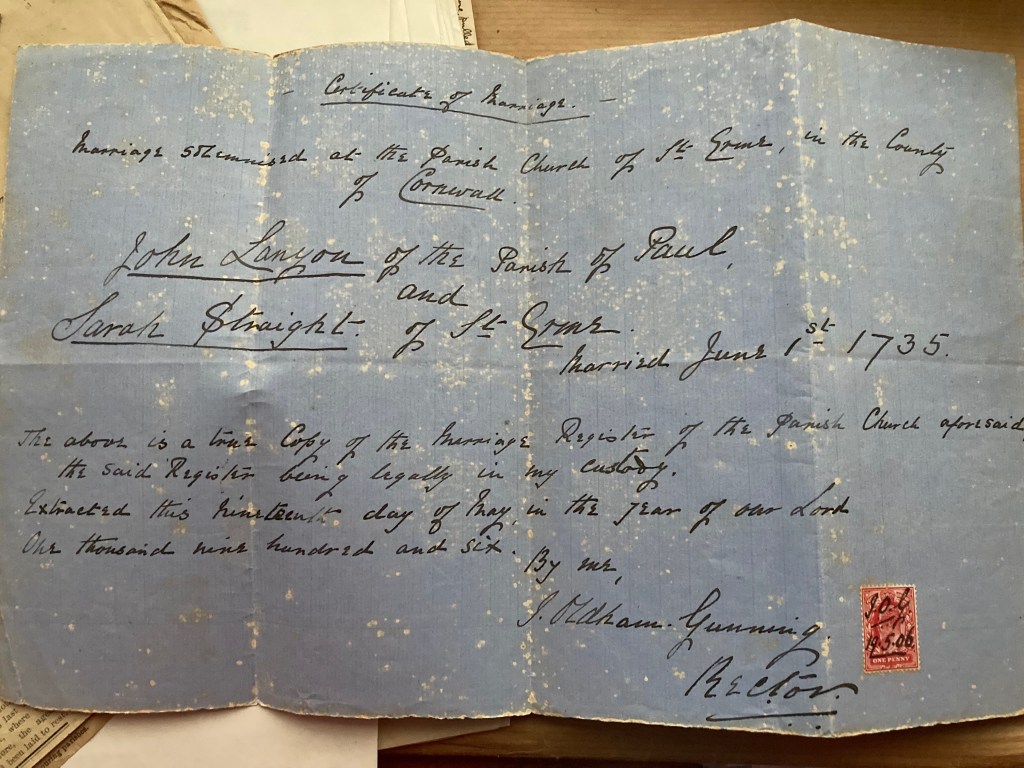 - Certificate of Marriage. -
Marriage solemnised at the Parish Church of St Erme, in the County
of Cornwall.
John Lanyon of the Parish of Paul,
and
Sarah Straight. of St Erme.
Married June 1st 1735.
The above is a true Copy of the Marriage Register of the Parish Church aforesaid,
the said Register being legally in my custody.
Extracted this nineteenth day of May, in the year of our Lord
One thousand nine hundred and six.
By me,
J. Oldham-Gunning.
Rector.
J.O.G
19.5.06
ONE PENNY
where
the a
been laid to re